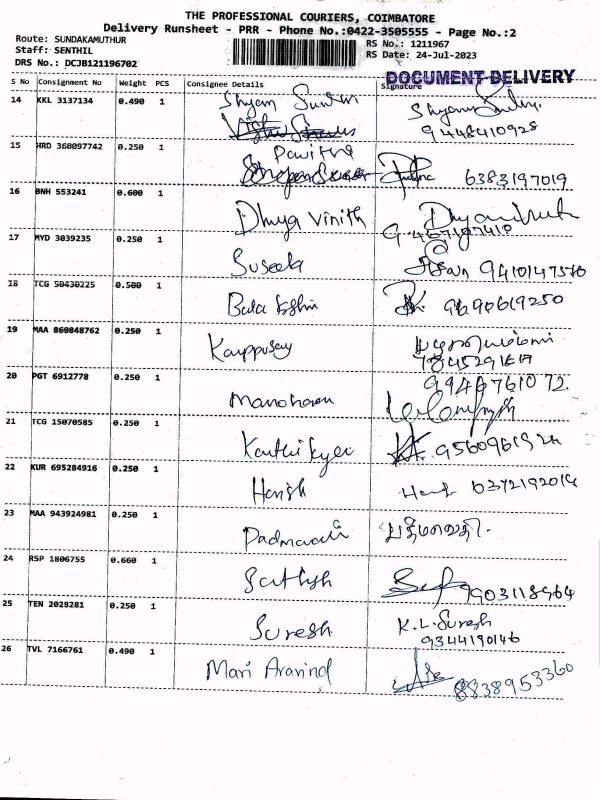 THE PROFESSIONAL COURIERS, COIMBATORE
Delivery Runsheet - PRR - Phone No.:0422-3505555 - Page No.:2
Route: SUNDAKAMUTHUR
RS No.: 1211967
Staff: SENTHIL
RS Date: 24-Jul-2023
DRS No.: DCJB121196702
DOCUMENT DELIVERY
S No Consignment No Weight PCS Consignee Details Signature
14 KKL 3137134 0.490 1 Shyam Sundar
9448410928
15 HRD 360097742 0.250 1 Pavithra 6383197019
16 BNH 553241 0.600 1 Dhuya Vinith
17 MYD 3039235 0.250 1 Suseela
18 TCG 50430225 0.500 1 Bala 9690619250
19 MAA 860848762 0.250 1 Karppusay
20 PGT 6912778 0.250 1 Manoharan 9946761072
21 TCG 15070585 0.250 1 Karthikeyan
22 KUR 695284916 0.250 1 Harish 6372192014
23 MAA 943924981 0.250 1 Padmavathi பத்மாவதி.
24 RSP 1806755 0.660 1 Sathish 9903118964
25 TEN 2028281 0.250 1 Suresh K.L.Suresh
9344190146
26 TVL 7166761 0.490 1 Mari Aravind 8838953360